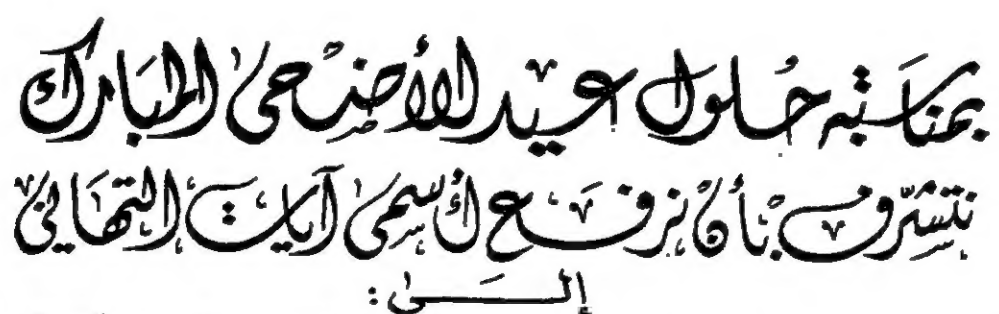 بمناسبة حلول عيد الأضحى المبارك
نتشرف بأن نرفع أسمى آيات التهاني
إلى :